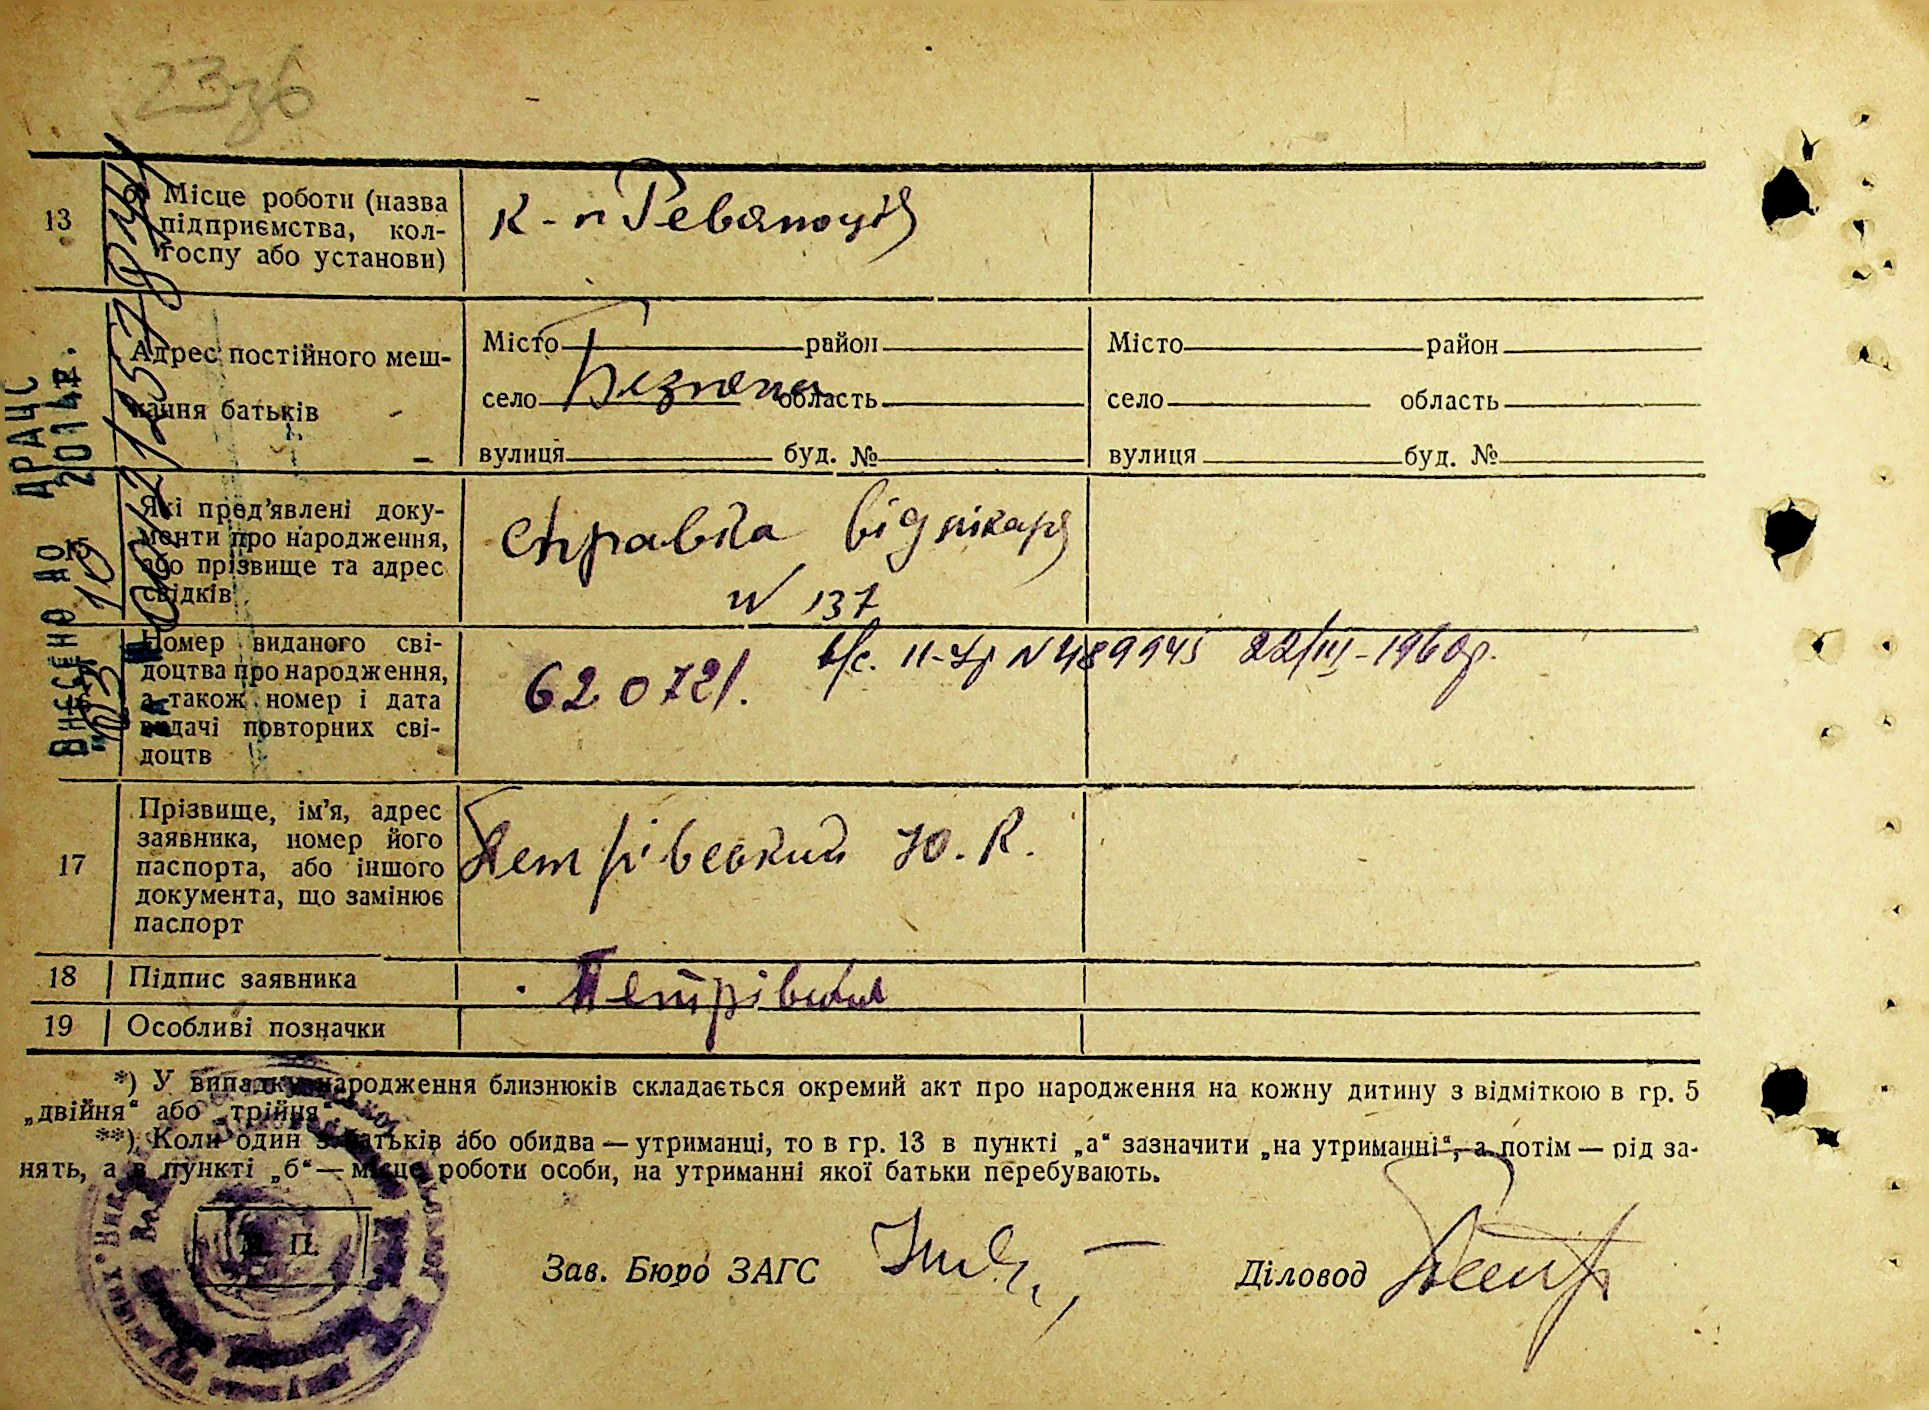 23зв
13
б) Місце роботи (назва
підприємства, кол-
госпу або установи)
К-п Революція
Адрес постійного меш-
кання батьків
Місто район
село область
вулиця буд. №
Місто район
село область
вулиця буд. №
Які пред'явлені доку-
менти про народження,
або прізвище та адрес
свідків
справка від лікаря
N 137
Номер виданого сві-
доцтва про народження,
а також номер і дата
видачі повторних сві-
доцтв
620721.
N 489945 22/III-1960р.
17
Прізвище, ім'я, адрес
заявника, номер його
паспорта, або іншого
документа, що замінює
паспорт
Петрівський Ю. К.
18
Підпис заявника
Петрівський
19
Особливі позначки
*) У випадку народження близнюків складається окремий акт про народження на кожну дитину з відміткою в гр. 5
„двійня“ або „трійня“.
**) Коли один з батьків або обидва — утриманці, то в гр. 13 в пункті „а“ зазначити „на утриманні“, а потім — рід за-
нять, а в пункті „б“ — місце роботи особи, на утриманні якої батьки перебувають.
М. П.
Зав. Бюро ЗАГС
Діловод
ВНЕСЕНО ДО ДРАЦС
"03" 10 2014р.